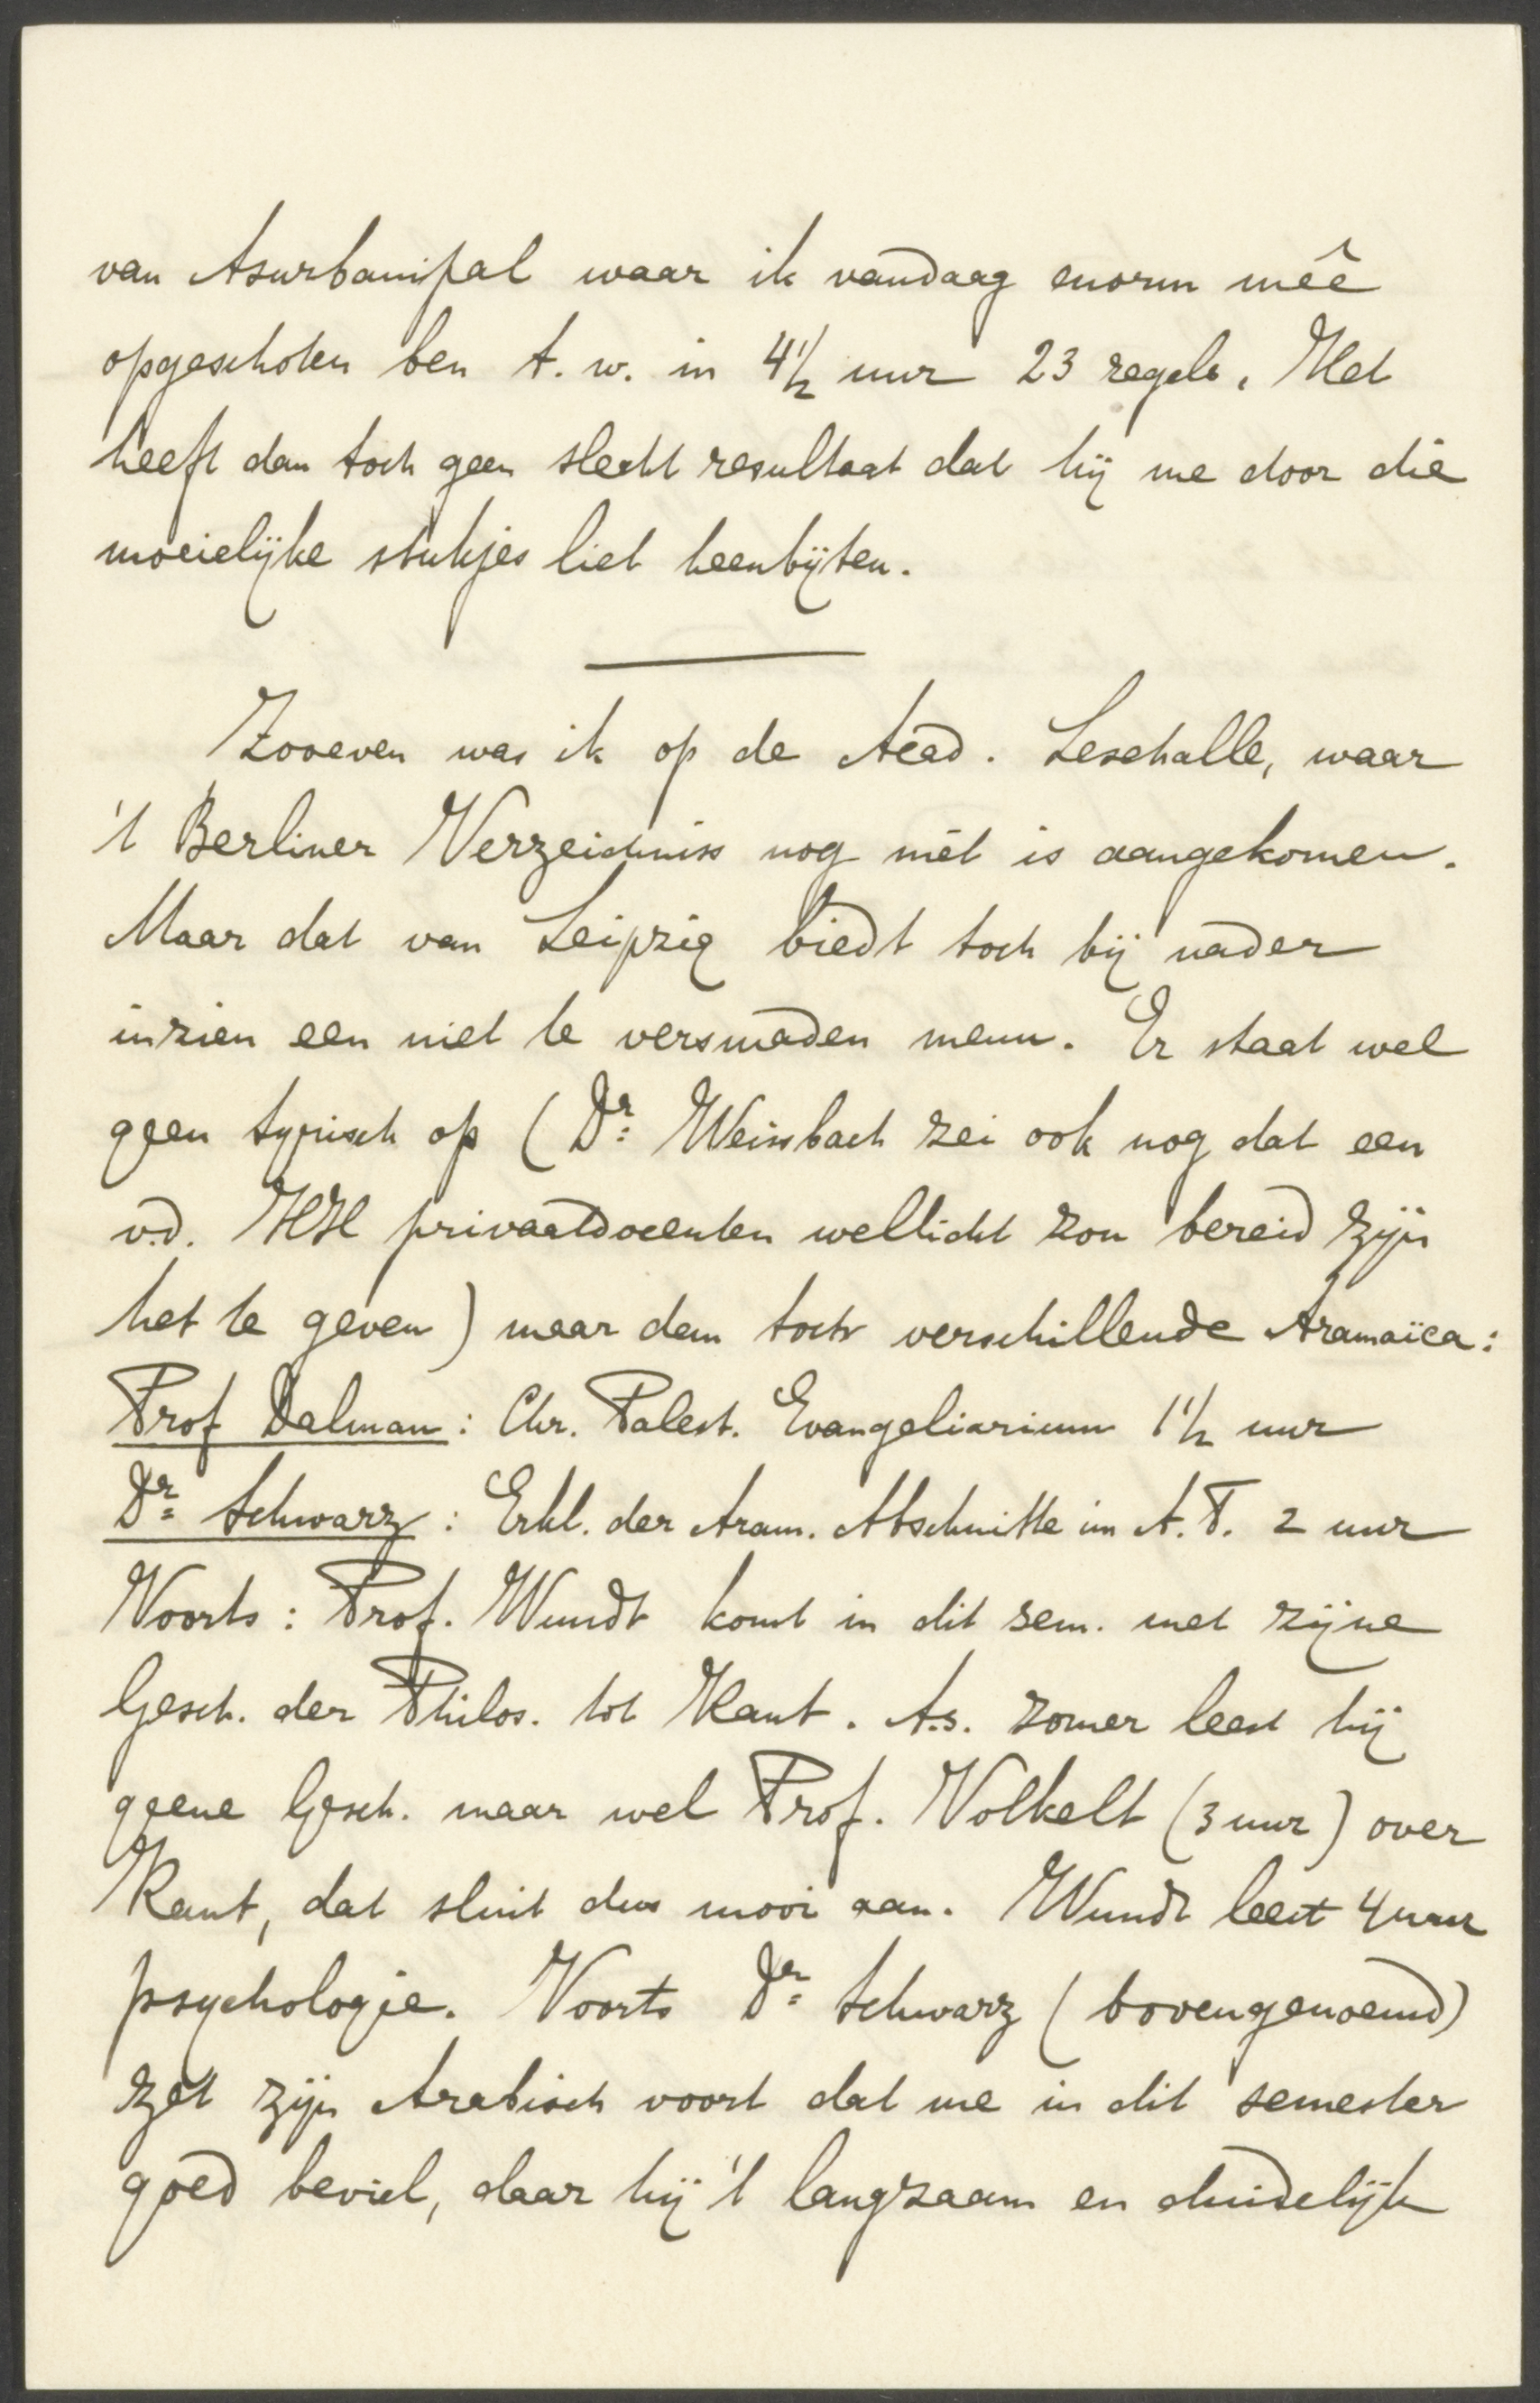 van Asurbanipal waar ik vandaag enorm meê
opgeschoten ben t. w. in 4½ uur 23 regels. Het
heeft dan toch geen slecht resultaat dat hij me door die
moeielijke stukjes liet heenbijten.
Zooeven was ik op de Acad. Lesehalle, waar
't Berliner Verzeichniss nog niet is aangekomen.
Maar dat van Leipzig biedt toch bij nader
inzien een niet te versmaden menu. Er staat wel
geen Syrisch op (Dr. Weissbach zei ook nog dat een
v.d. HH privaatdocenten wellicht zou bereid zijn
het te geven) maar dan toch verschillende Aramaïca:
Prof Dalman: Chr. Palest. Evangeliarium 1½ uur
Dr. Schwarz: Erkl. der Aram. Abschnitte im A. T. 2 uur
Voorts: Prof. Wundt komt in dit sem. met zijne
Gesch. der Philos. tot Kant. A.s. zomer leest hij
geene Gesch. maar wel Prof. Volkelt (3 uur) over
Kant, dat sluit dus mooi aan. Wundt leest 4 uur
psychologie. Voorts Dr. Schwarz (bovengenoemd)
zet zijn Arabisch voort dat me in dit semester
goed beviel, daar hij 't langzaam en duidelijk